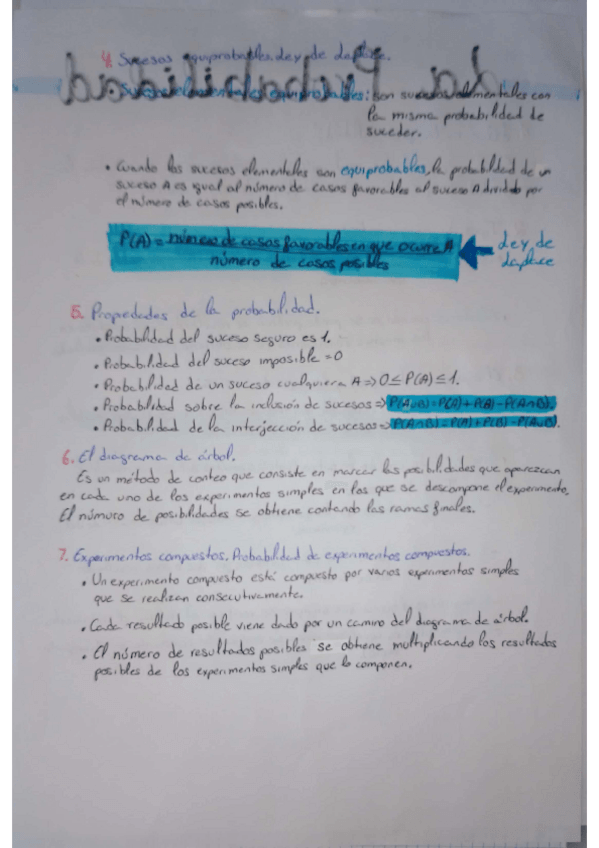 4. Sucesos equiprobables. Ley de Laplace.
La Probabilidad
• Sucesos elementales equiprobables: son sucesos elementales con
la misma probabilidad de
suceder.
• Cuando los sucesos elementales son equiprobables, la probabilidad de un
suceso A es igual al número de casos favorables al suceso A dividido por
el número de casos posibles.
P(A) = número de casos favorables en que ocurre A
número de casos posibles
Ley de
Laplace
5. Propiedades de la probabilidad.
• Probabilidad del suceso seguro es 1.
• Probabilidad del suceso imposible = 0
• Probabilidad de un suceso cualquiera A => 0 ≤ P(A) ≤ 1.
• Probabilidad sobre la inclusión de sucesos => P(A∪B) = P(A) + P(B) - P(A∩B).
• Probabilidad de la interjección de sucesos => P(A∩B) = P(A) + P(B) - P(A∪B).
6. El diagrama de árbol.
Es un método de conteo que consiste en marcar las posibilidades que aparezcan
en cada uno de los experimentos simples en los que se descompone el experimento.
El número de posibilidades se obtiene contando las ramas finales.
7. Experimentos compuestos. Probabilidad de experimentos compuestos.
• Un experimento compuesto está compuesto por varios experimentos simples
que se realizan consecutivamente.
• Cada resultado posible viene dado por un camino del diagrama de árbol.
• El número de resultados posibles se obtiene multiplicando los resultados
posibles de los experimentos simples que lo componen.